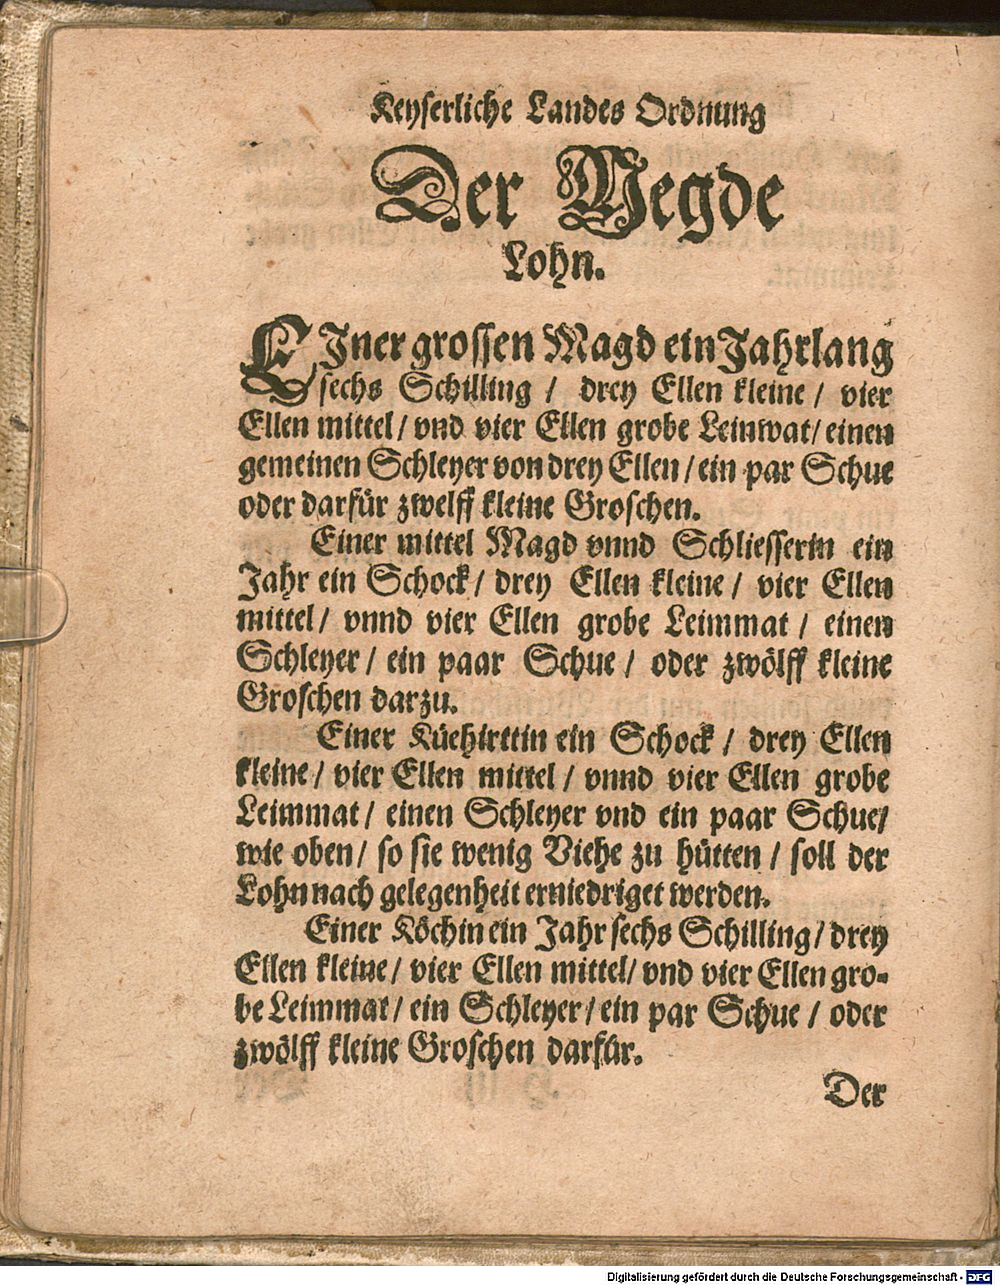 Keyserliche Landes Ordnung
Der Megde
Lohn.
EIner grossen Magd ein Jahrlang
sechs Schilling / drey Ellen kleine / vier
Ellen mittel / vnd vier Ellen grobe Leinwat / einen
gemeinen Schleyer von drey Ellen / ein par Schue
oder darfür zwelff kleine Groschen.
Einer mittel Magd vnnd Schliesserin ein
Jahr ein Schock / drey Ellen kleine / vier Ellen
mittel / vnnd vier Ellen grobe Leimmat / einen
Schleyer / ein paar Schue / oder zwölff kleine
Groschen darzu.
Einer Küehirttin ein Schock / drey Ellen
kleine / vier Ellen mittel / vnnd vier Ellen grobe
Leimmat / einen Schleyer vnd ein paar Schue /
wie oben / so sie wenig Viehe zu hütten / soll der
Lohn nach gelegenheit erniedriget werden.
Einer Köchin ein Jahr sechs Schilling / drey
Ellen kleine / vier Ellen mittel / vnd vier Ellen gro-
be Leimmat / ein Schleyer / ein par Schue / oder
zwölff kleine Groschen darfür.
Der
Digitalisierung gefördert durch die Deutsche Forschungsgemeinschaft - DFG